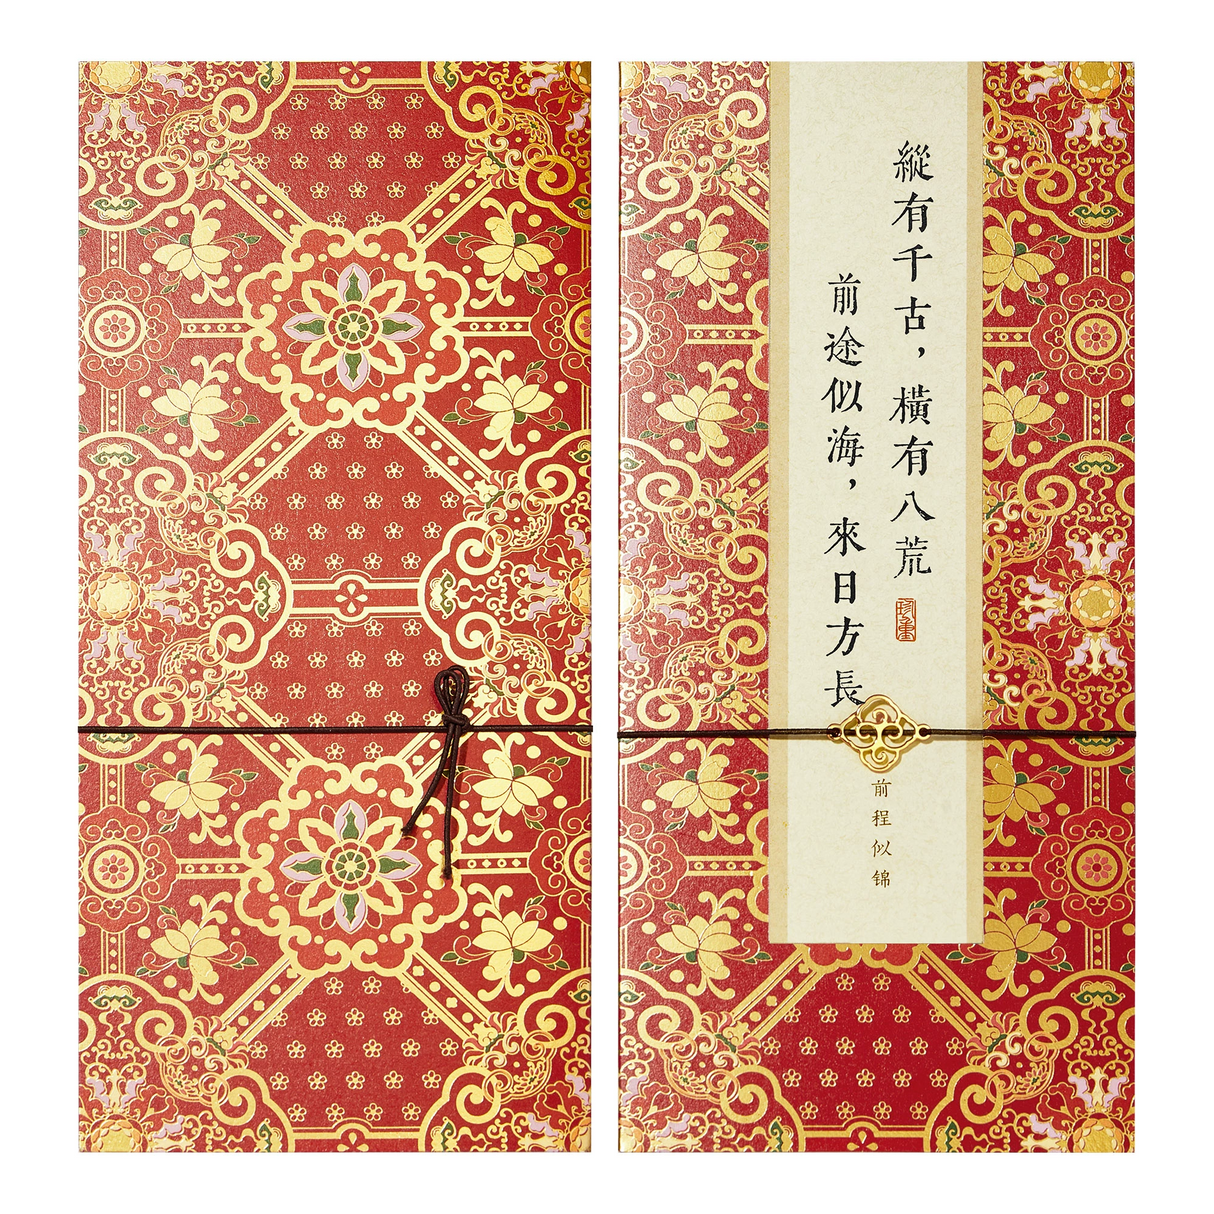 縱有千古，橫有八荒
珍重
前途似海，來日方長
前程似锦